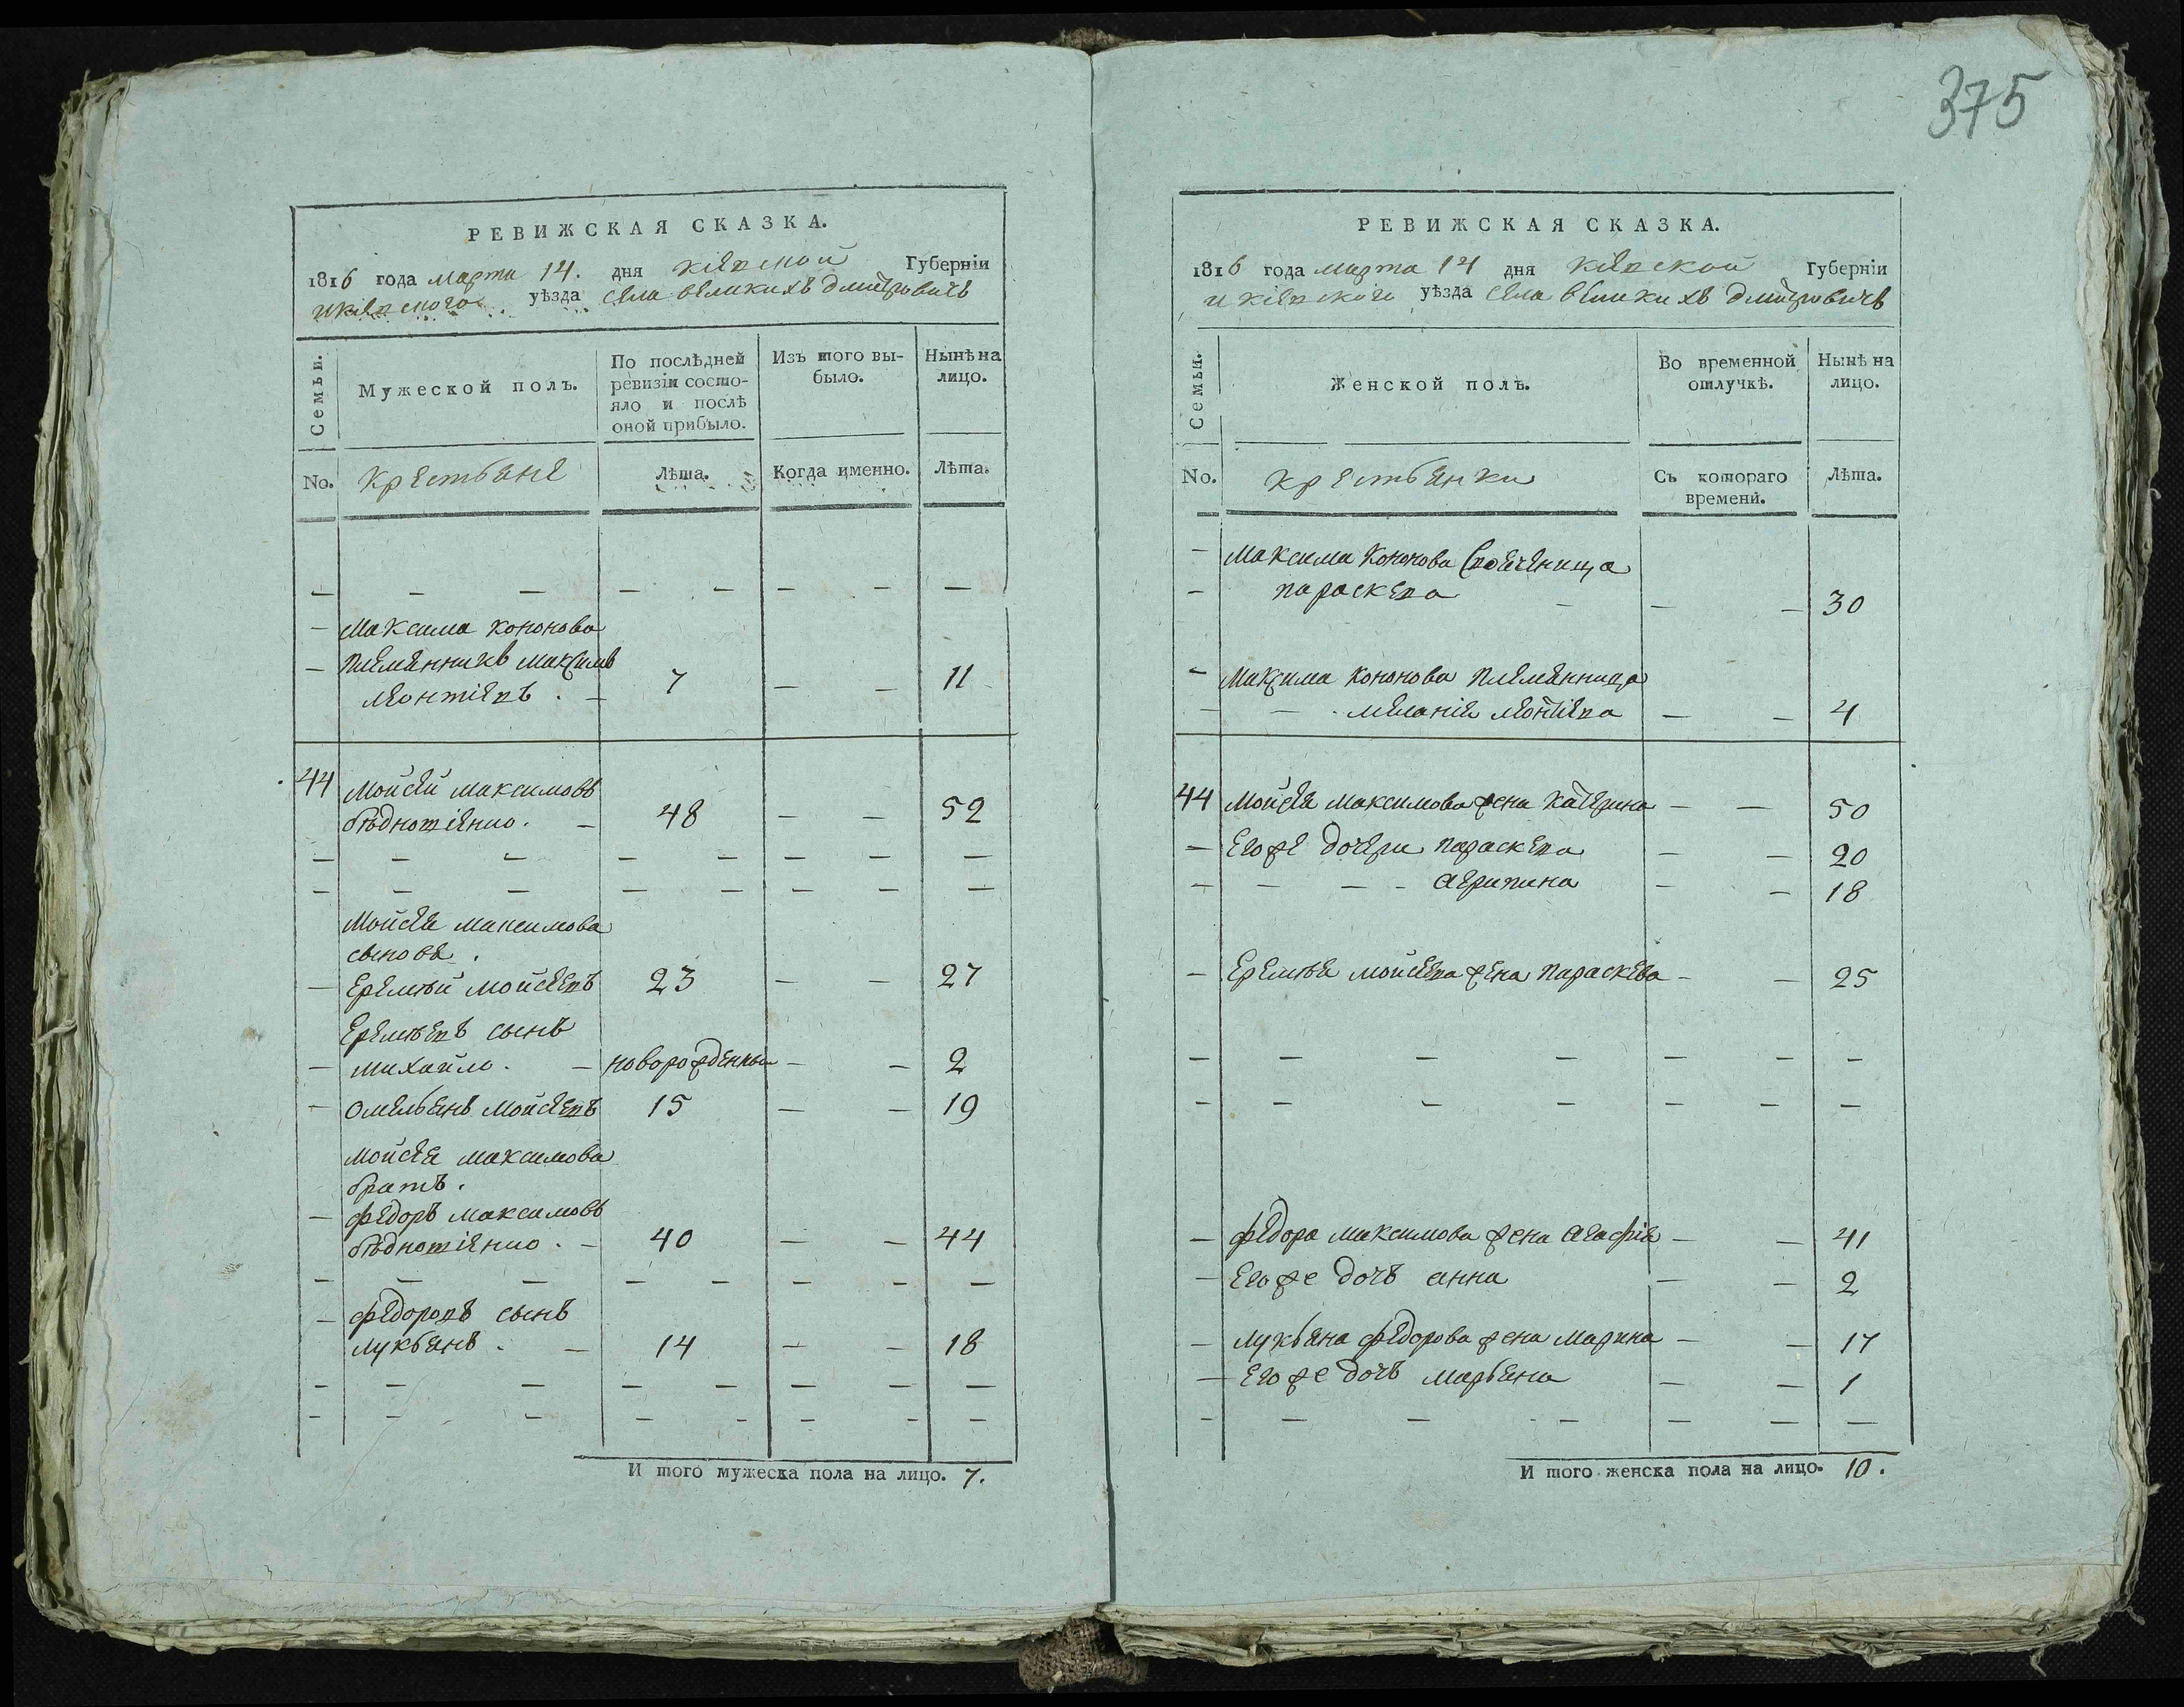 375
РЕВИЖСКАЯ СКАЗКА.
1816 года марта 14. дня кіевской Губерніи
и кіевского уѣзда села великихъ дмитровичъ
Семьи.
Мужеской полъ.
По послѣдней ревизіи состо-
яло и послѣ оной прибыло.
Изъ того вы-
было.
Нынѣ на
лицо.
No. крестьяне Лѣта. Когда именно. Лѣта.
— — — — — — — —
— Максима кононова
— племянникъ максимъ
леонтіевъ . — 7 — — 11
44 Мойсей максимовъ
бѣднотѣнко . — 48 — — 52
— — — — — — — —
— — — — — — — —
Мойсея максимова
сыновя .
— Еремѣй мойсеевъ 23 — — 27
Еремѣевъ сынъ
— михайло . — новорожденный — — 2
— омельянъ мойсеевъ 15 — — 19
мойсея максимова
братъ .
— федоръ максимовъ
бѣднотѣнко . — 40 — — 44
— — — — — — — —
— федоровъ сынъ
лукьянъ . — 14 — — 18
— — — — — — — —
— — — — — — — —
И того мужеска пола на лицо. 7.
РЕВИЖСКАЯ СКАЗКА.
1816 года марта 14 дня кіевской Губерніи
и кіевского уѣзда села великихъ дмитровичъ
Семьи.
Женской полъ.
Во временной
отлучкѣ.
Нынѣ на
лицо.
No. крестьянки Съ котораго
времени. Лѣта.
— максима кононова своячени́ца
— параскева — — — 30
— максима кононова племянница
— — . меланія леонтіева — — 4
44 Мойсея максимова жена катерина — — 50
— Его же дочери параскева — — 20
— — — — агрипина — — 18
— Еремѣя мойсеева жена параскева — — 25
— — — — — — —
— — — — — — —
— федора максимова жена агафія — — 41
— Его же дочь анна — — 2
— лукьяна федорова жена марина — — 17
— Его же дочь марьяна — — 1
— — — — — — —
И того женска пола на лицо. 10.